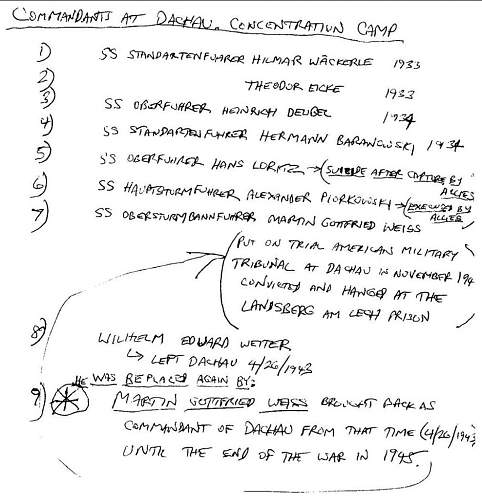 COMMANDANTS AT DACHAU CONCENTRATION CAMP
1) SS STANDARTENFUHRER HILMAR WÄCKERLE 1933
2) THEODOR EICKE 1933
3) SS OBERFUHRER HEINRICH DEUBEL 1934
4) SS STANDARTENFUHRER HERMANN BARANOWSKI 1934
5) SS OBERFUHRER HANS LORITZ → (SUICIDE AFTER CAPTURE BY ALLIES
6) SS HAUPTSTURMFUHRER ALEXANDER PIORKOWSKI → (EXECUTED BY ALLIES
7) SS OBERSTURMBANNFUHRER MARTIN GOTTFRIED WEISS
(PUT ON TRIAL AMERICAN MILITARY
TRIBUNAL AT DACHAU IN NOVEMBER 194
CONVICTED AND HANGED AT THE
LANDSBERG AM LECH PRISON
8) WILHELM EDWARD WEITER
↳ LEFT DACHAU 4/26/1943
HE WAS REPLACED AGAIN BY:
9) MARTIN GOTTFRIED WEISS BROUGHT BACK AS
COMMANDANT OF DACHAU FROM THAT TIME (4/26/1943)
UNTIL THE END OF THE WAR IN 1945.